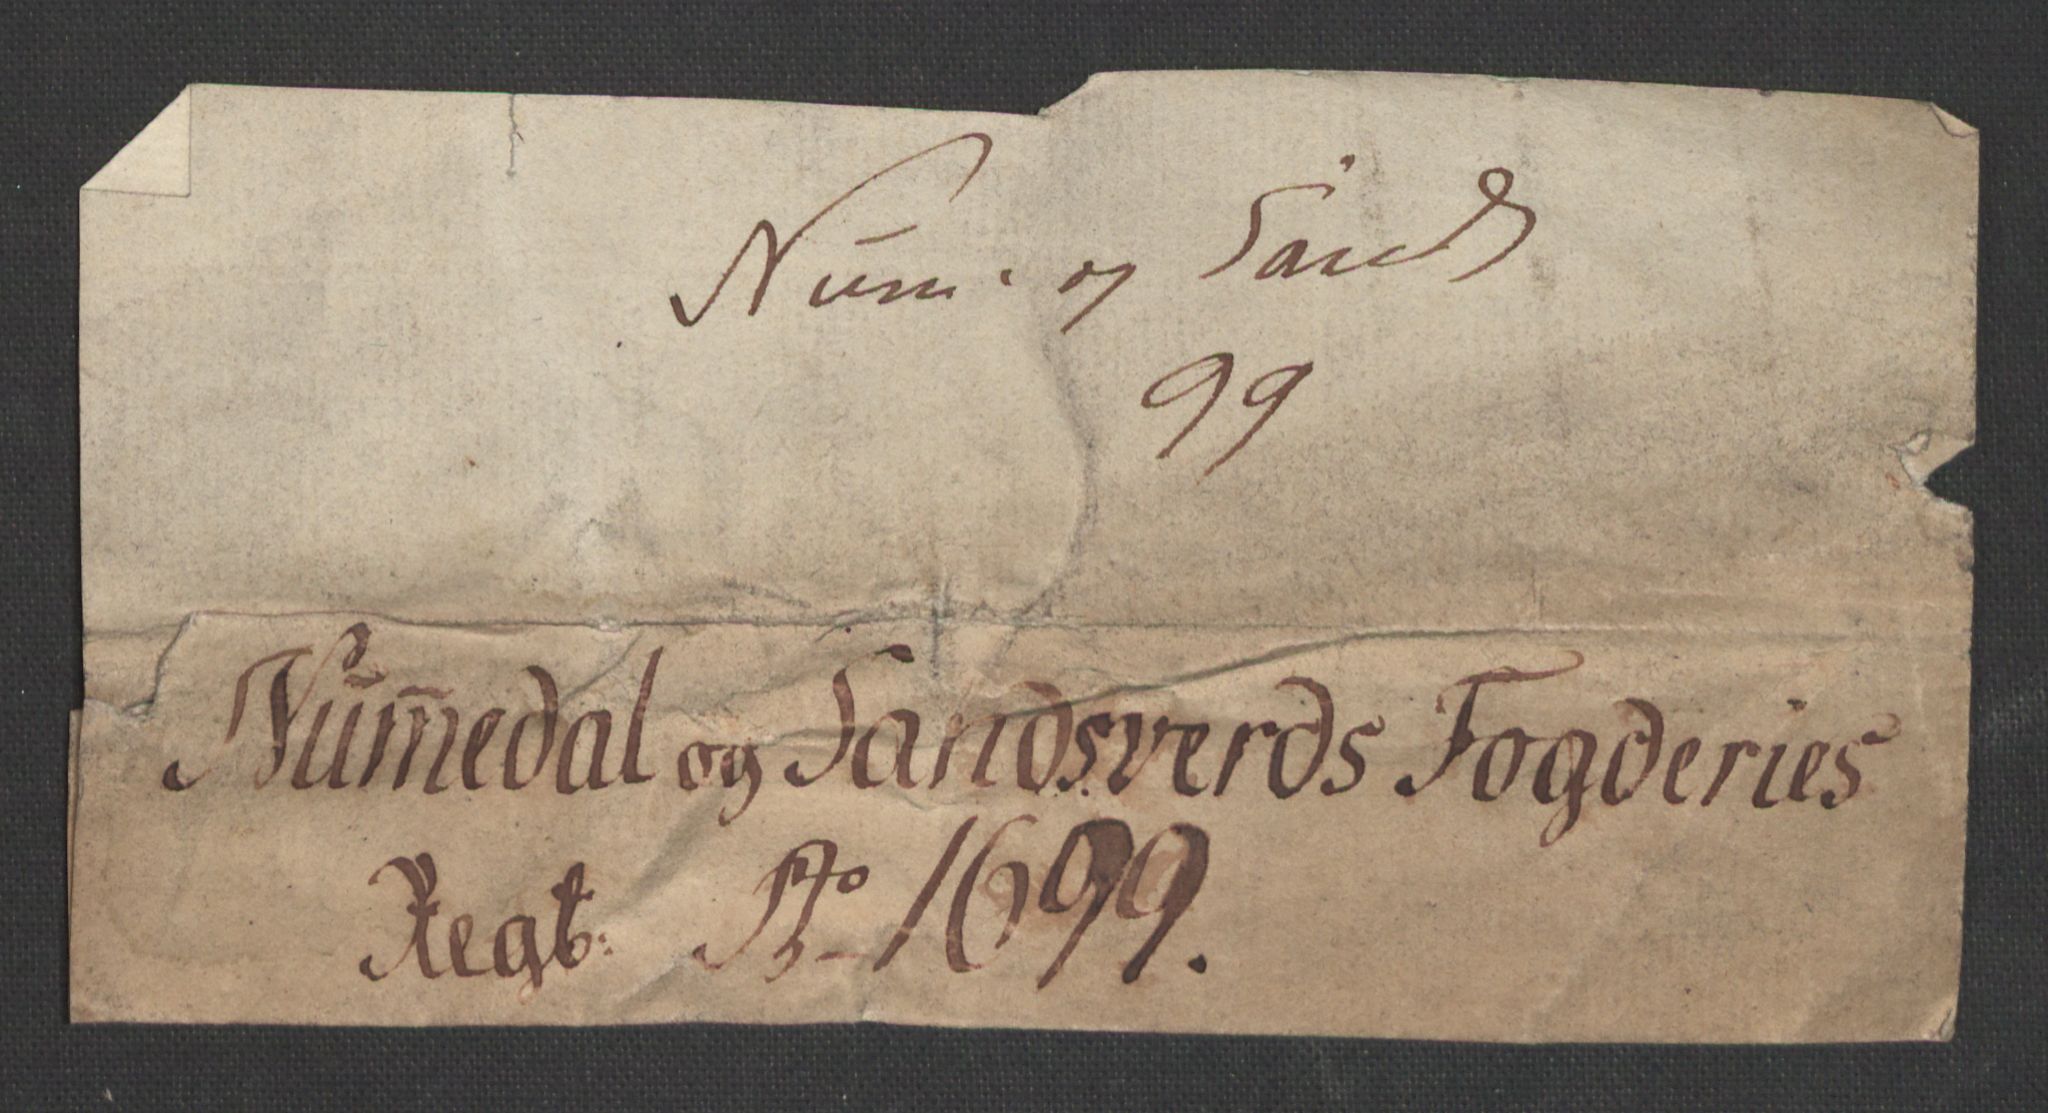 Num. og Sands
99
Num̄edal og Sandsverds Fogderies
Regb: Aō 1699.